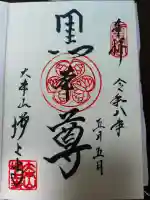 奉拝
令和八年
五月五日
黒本尊
大本山
増上寺